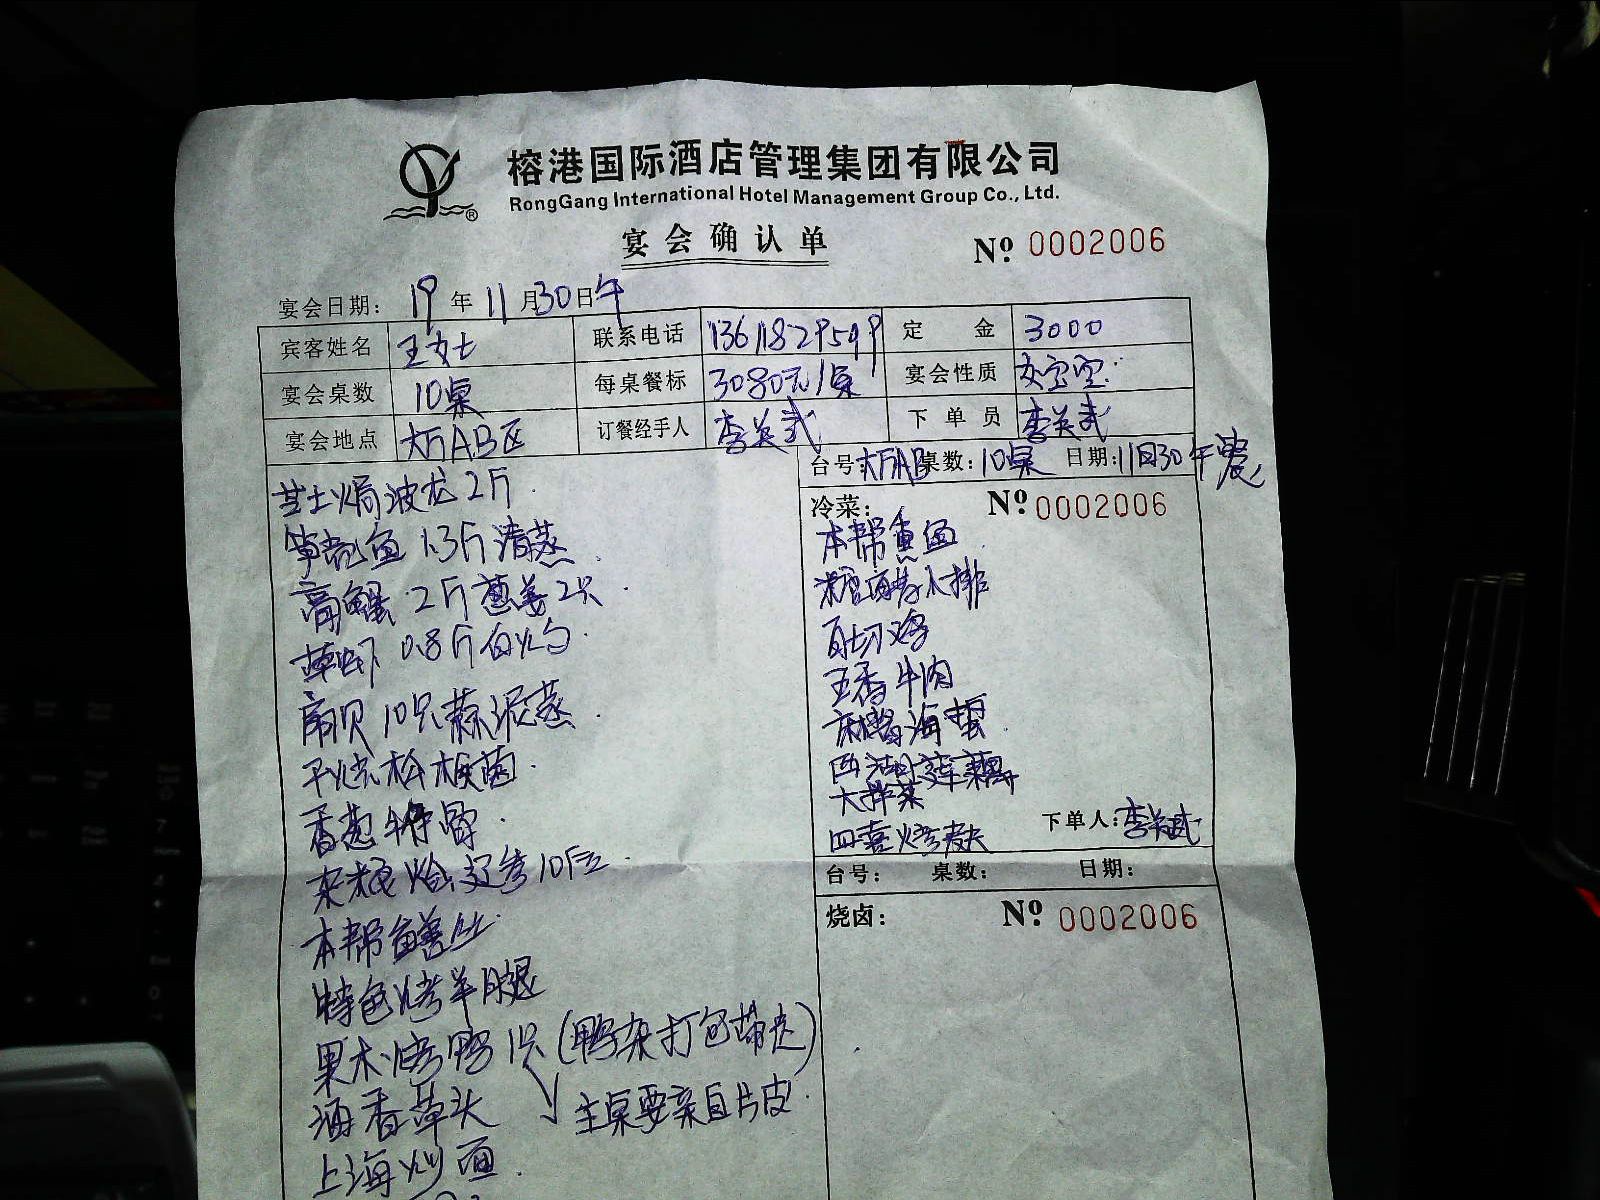 榕港国际酒店管理集团有限公司
RongGang International Hotel Management Group Co., Ltd.
宴会确认单
№ 0002006
宴会日期: 19 年 11 月 30 日 午
宾客姓名 王女士 联系电话 定金 3000
宴会桌数 10桌 每桌餐标 3080元/桌 宴会性质 女宝宝
宴会地点 大厅AB区 订餐经手人 李关武 下单员 李关武
台号: 大厅AB 桌数: 10桌 日期: 11月30 午宴
芝士焗波龙2斤
冷菜: № 0002006
笋壳鱼 1.3斤清蒸
膏蟹 2斤葱姜2只
草虾 0.8斤白灼
扇贝10只蒜泥蒸
干烧松板菌
香葱牛仔骨
杂粮烩辽参10位
本帮鳝丝
特色烤羊腿
果木烤鸭1只(鸭杂打包带走)
主桌要亲自片皮
酒香草头
上海炒面
本帮熏鱼
糖醋小排
白切鸡
五香牛肉
海蜇
西湖莲藕
大拌菜
四喜烤麸
下单人: 李关武
台号: 桌数: 日期:
烧卤: № 0002006